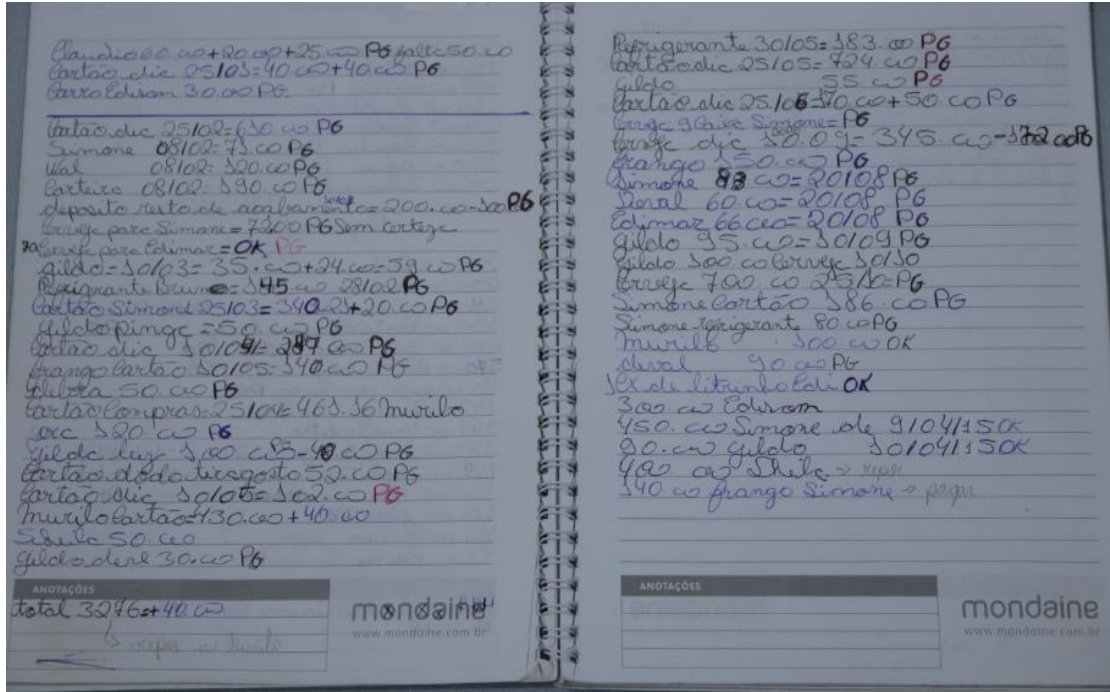 Claudio 60.00+20.00+25.00 PG falta 50.00
Cartão dic 25/03=40.00+40.00 PG
Carro Edisom 30.00 PG
Cartão dic 25/02=610.00 PG
Simone 08/02= 71.00 PG
Wal 08/02= 120.00 PG
Carteira 08/02= 190.00 PG
deposito resto de acabamento=200.00-100 PG
Cerveja para Simone=7200 PG Sem certeza
Cerveja para Edimar=OK PG
gildo=10/03=35.00+24.00=59.00 PG
Refrigerante Bruno=145.00 28/02 PG
Cartão Simone 25/03=340.21+20.00 PG
gildo pinga=50.00 PG
Cartão dic 10/04= 00 PG
frango Cartão 10/05=140.00 PG
50.00 PG
Cartão Compras=25/04=461.16 Murilo
120.00 PG
gilda luz 100.00 -40.00 PG
Cartão dodo tiragosto 52.00 PG
Cartão dic 10/05=102.00 PG
Murilo Cartão=130.00+40.00
Sheila 50.00
gildo 30.00 PG
ANOTAÇÕES
total 3276=+40.00
repor
mondaine
www.mondaine.com.br
Refrigerante 30/05=183.00 PG
Cartão dic 25/05=724.00 PG
Gildo 55.00 PG
Cartão dic 25/06=70.00+50.00 PG
Cerveja Simone=PG
Cerveja dic 10.09=345.00-172.00 PG
frango 150.00 PG
Simone 83.00=20/08 PG
60.00=20/08 PG
Edimar 66.00=20/08 PG
gildo 95.00=10/09 PG
Gildo 100.00 Cerveja 10/10
Cerveja 700.00 25/10=PG
Simone Cartão 186.00 PG
Simone refrigerante 80.00 PG
Murilo 100.00 OK
90.00 PG
1 CX de litrinho Edi OK
300.00 Edisom
450.00 Simone de 9/04/15 OK
90.00 gildo 10/04/15 OK
400.00 Sheila → repor
140.00 frango Simone → pagar
ANOTAÇÕES
mondaine
www.mondaine.com.br